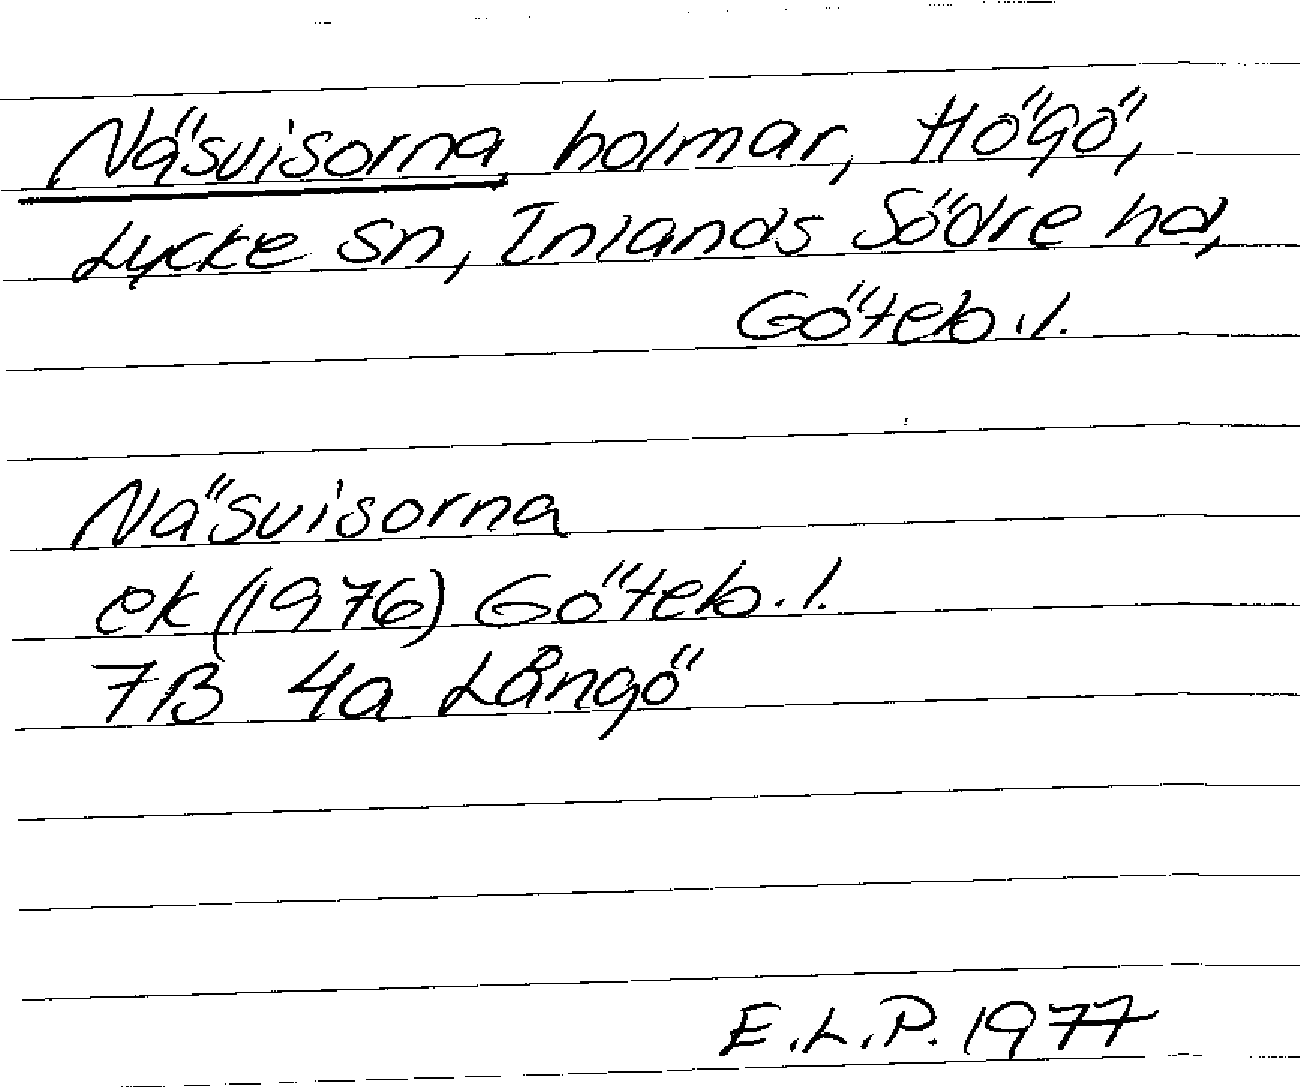 Näsvisorna holmar, Högö,
Lycke sn, Inlands Södre hd,
Göteb.l.
Näsvisorna
ek (1976) Göteb.l.
7B 4a Långö
E.L.P. 1977